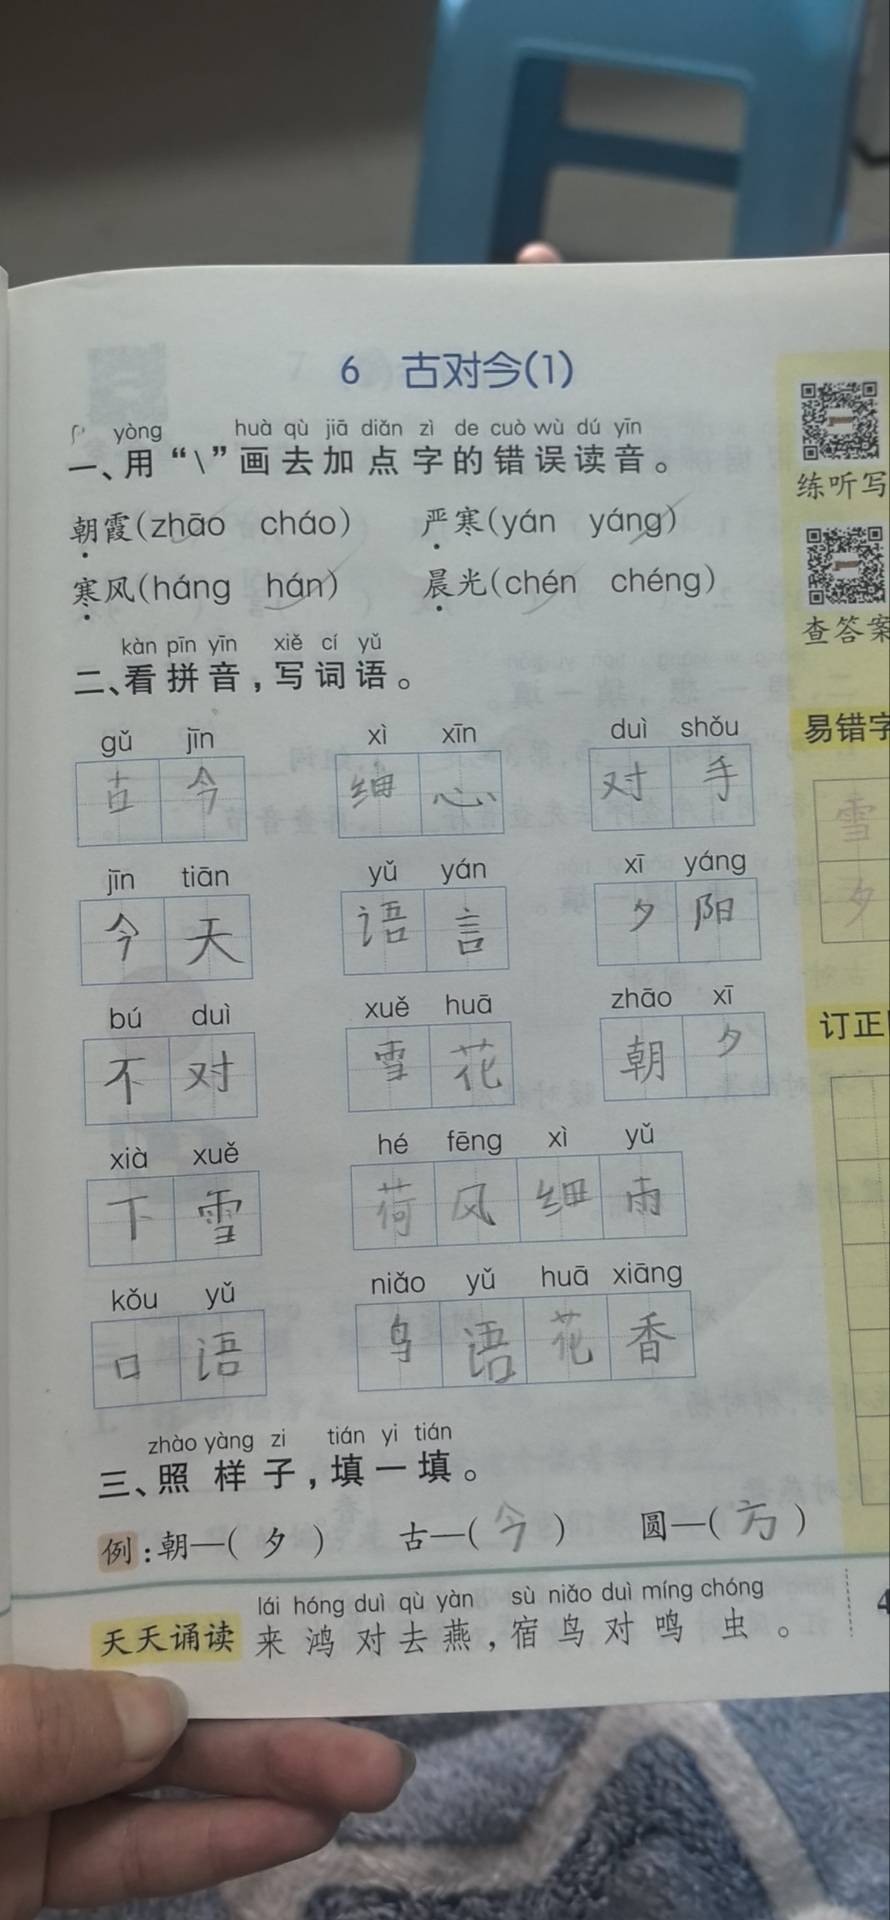 6 古对今(1)
yòng huà qù jiā diǎn zì de cuò wù dú yīn
一、用“\”画去加点字的错误读音。
练听写
朝霞(zhāo cháo) 严寒(yán yáng)
寒风(háng hán) 晨光(chén chéng)
查答案
kàn pīn yīn xiě cí yǔ
二、看拼音,写词语。
易错字
gǔ jīn xì xīn duì shǒu
古今 细心 对手
雪
jīn tiān yǔ yán xī yáng
今天 语言 夕阳
夕
bú duì xuě huā zhāo xī
订正
不对 雪花 朝夕
xià xuě hé fēng xì yǔ
下雪 荷风细雨
kǒu yǔ niǎo yǔ huā xiāng
口语 鸟语花香
zhào yàng zi tián yi tián
三、照样子,填一填。
例:朝—(夕) 古—(今) 圆—(方)
lái hóng duì qù yàn sù niǎo duì míng chóng
天天诵读 来鸿对去燕,宿鸟对鸣虫。